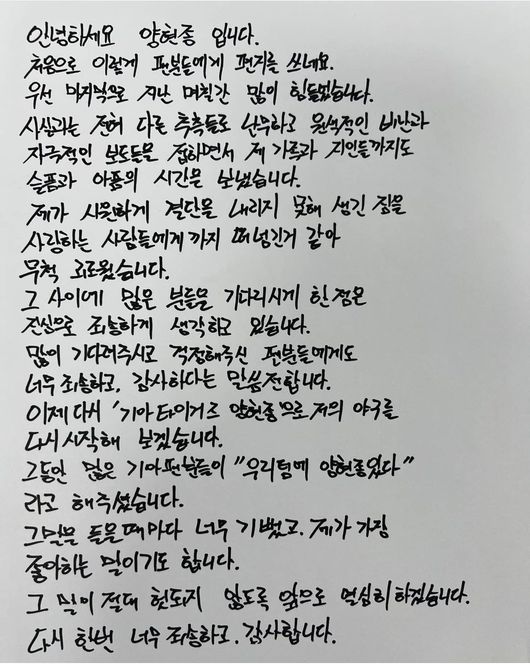 안녕하세요 양현종 입니다.
처음으로 이렇게 팬분들에게 편지를 쓰네요.
우선 마지막으로 지난 며칠간 많이 힘들었습니다.
사실과는 전혀 다른 추측들로 난무하고 원색적인 비난과
자극적인 보도들을 접하면서 제 가족과 지인들까지도
슬픔과 아픔의 시간을 보냈습니다.
제가 시원하게 결단을 내리지 못해 생긴 짐을
사랑하는 사람들에게 까지 떠넘긴거 같아
무척 괴로웠습니다.
그 사이에 많은 분들을 기다리시게 한 점은
진심으로 죄송하게 생각하고 있습니다.
많이 기다려주시고 걱정해주신 팬분들에게도
너무 죄송하고, 감사하다는 말씀전합니다.
이제 다시 '기아 타이거즈 양현종'으로 저의 야구를
다시 시작해 보겠습니다.
그동안 많은 기아팬분들이 "우리팀에 양현종있다"
라고 해주셨습니다.
그말을 들을때마다 너무 기뻤고, 제가 가장
좋아하는 말이기도 합니다.
그 말이 절대 헛되지 않도록 앞으로 열심히하겠습니다.
다시 한번 너무 죄송하고, 감사합니다.